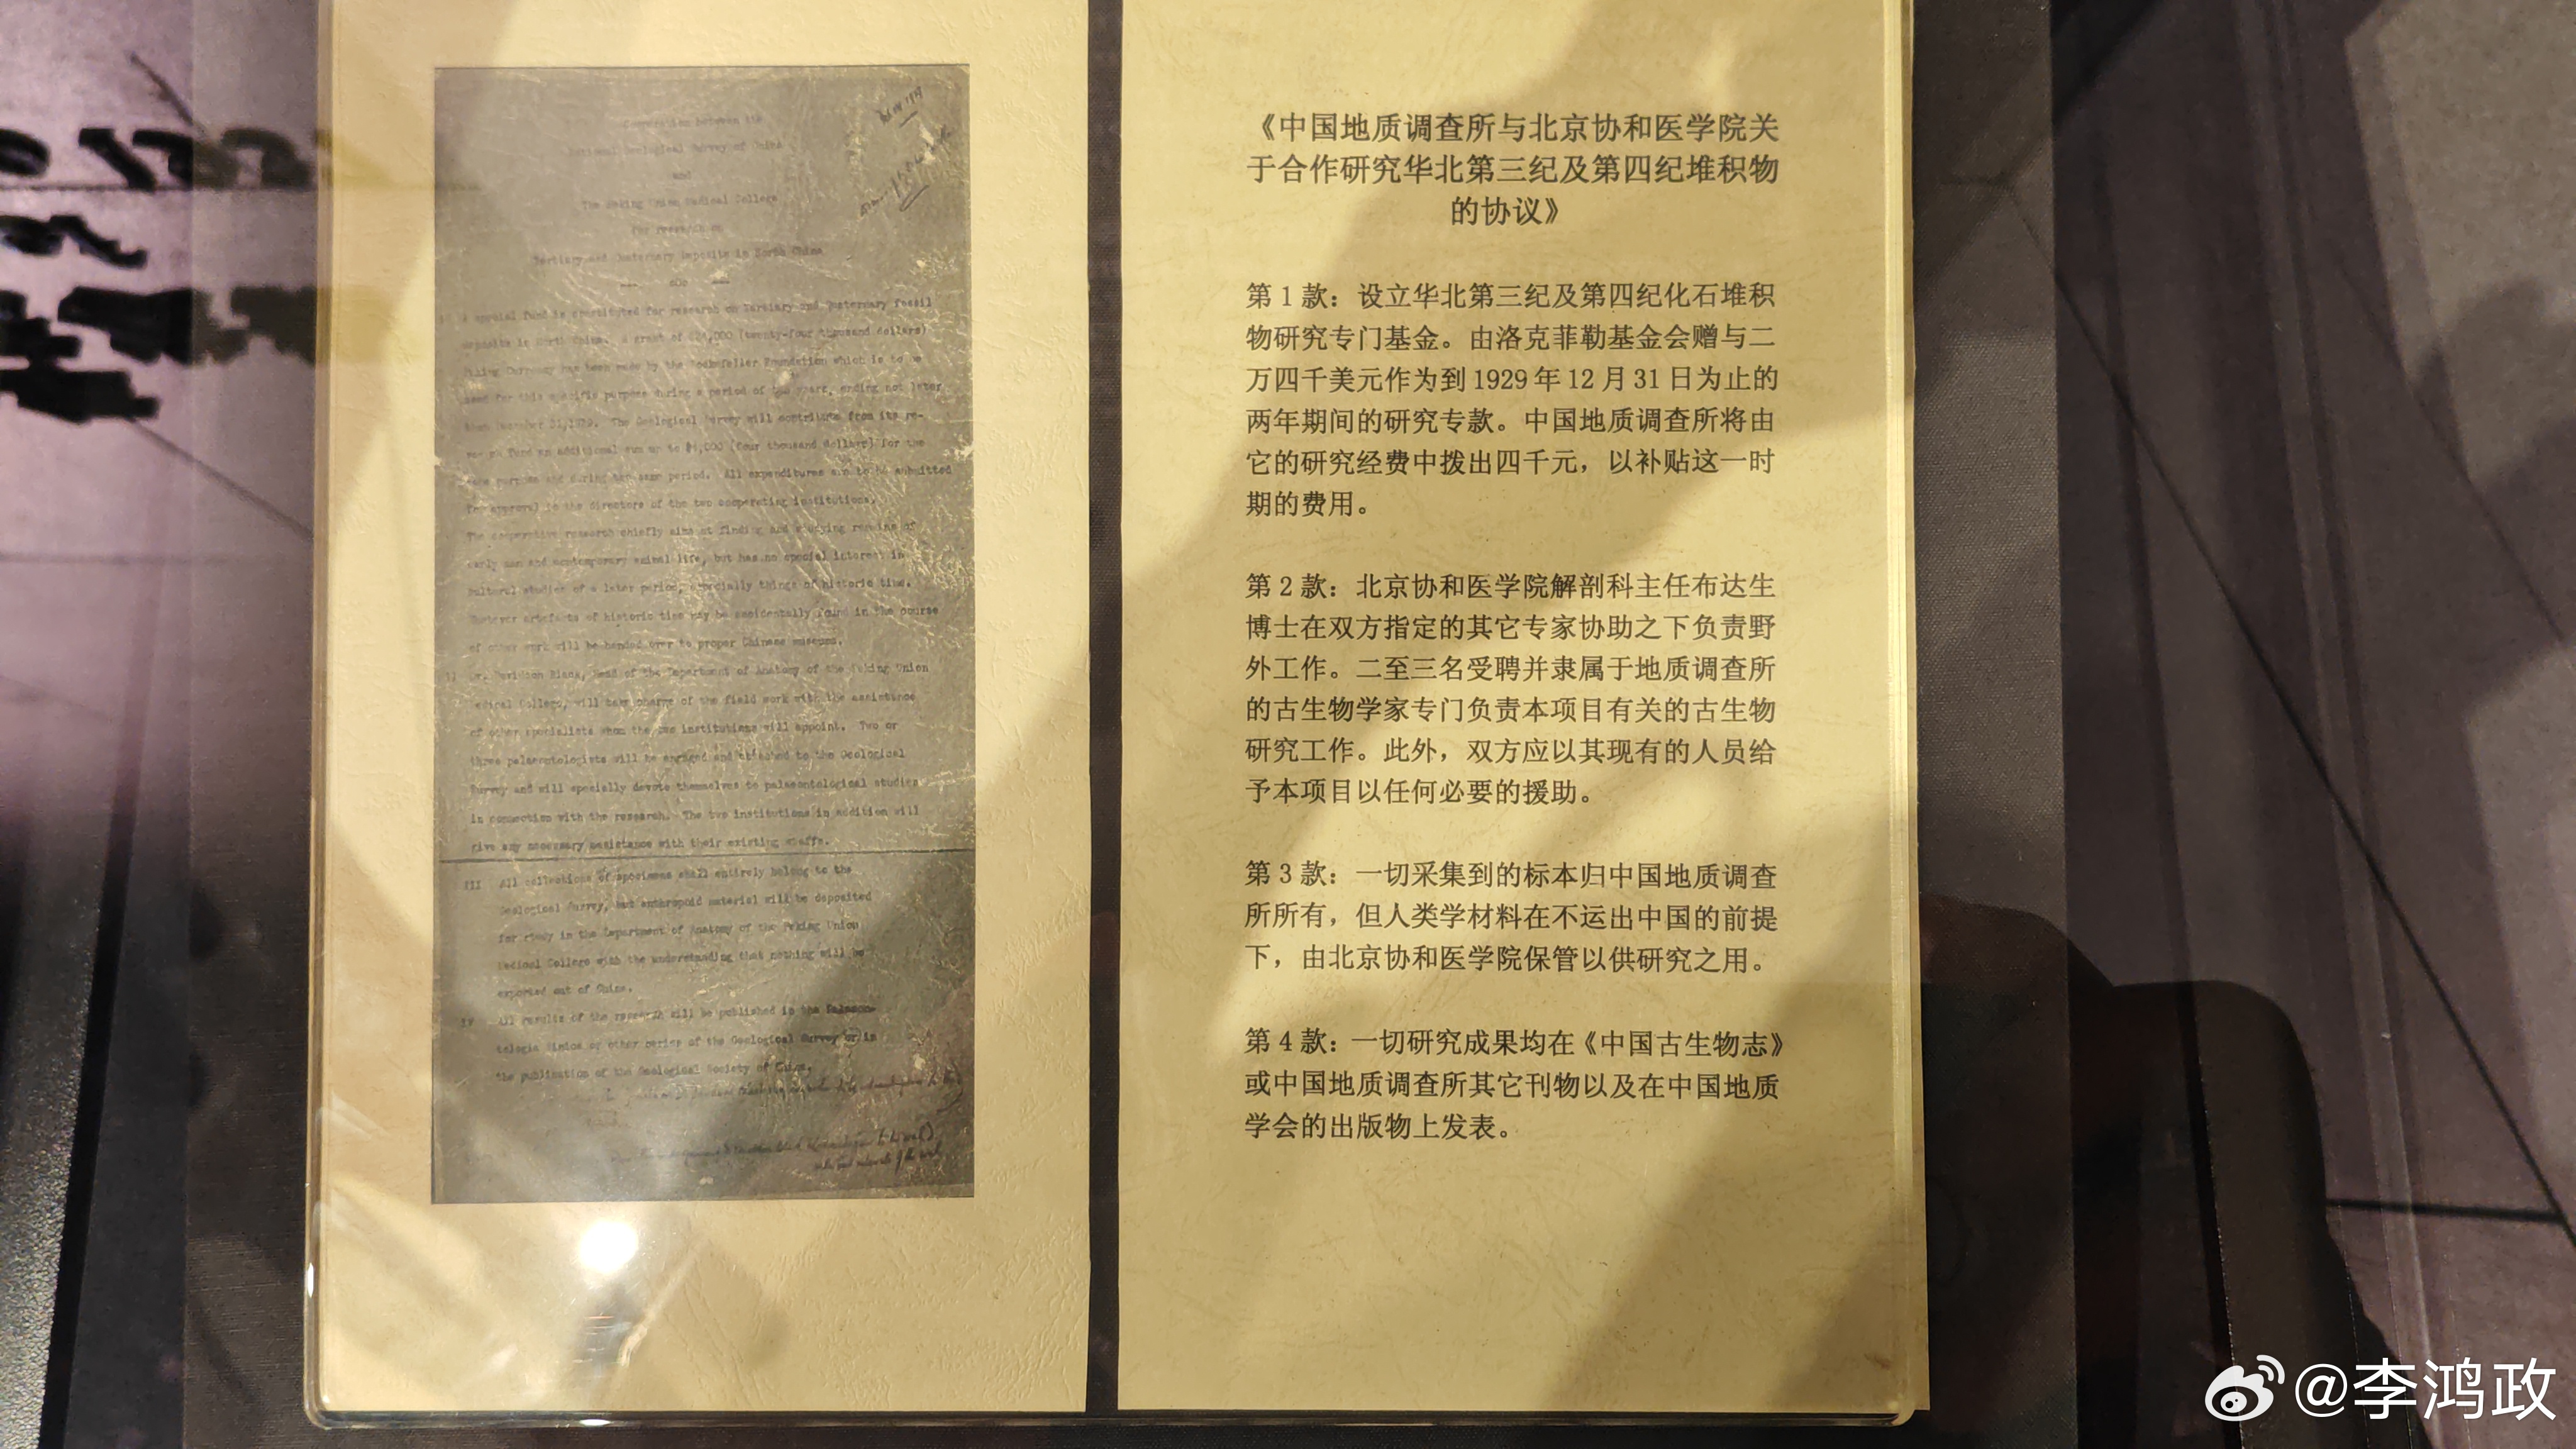 Cooperation between the
National Geological Survey of China
and
The Peking Union Medical College
for research on
Tertiary and Quaternary Deposits in North China
A special fund is constituted for research on Tertiary and Quaternary fossil
deposits in North China. A grant of $24,000 (twenty-four thousand dollars)
Peking Currency has been made by the Rockefeller Foundation which is to be
used for this specific purpose during a period of two years, ending not later
than December 31, 1929. The Geological Survey will contribute from its re-
fund an additional sum up to $4,000 (four thousand dollars) for the
same purpose and during the same period. All expenditures are to be submitted
for approval to the directors of the two cooperating institutions.
The cooperative research chiefly aims at finding and studying remains of
early man and contemporary animal life, but has no special interest in
cultural studies of a later period, especially things of historic time.
However artefacts of historic time may be accidentally found in the course
of other work will be handed over to proper Chinese museums.
II Dr. Davidson Black, Head of the Department of Anatomy of the Peking Union
Medical College, will take charge of the field work with the assistance
of other specialists whom the two institutions will appoint. Two or
three palaeontologists will be engaged and attached to the Geological
Survey and will specially devote themselves to palaeontological studies
in connection with the research. The two institutions in addition will
give any necessary assistance with their existing staffs.
III All collections of specimens shall entirely belong to the
Geological Survey, but anthropoid material will be deposited
for study in the Department of Anatomy of the Peking Union
Medical College with the understanding that nothing will be
exported out of China.
IV All results of the research will be published in the Palaeon-
tologia Sinica or other series of the Geological Survey or in
the publication of the Geological Society of China.
《中国地质调查所与北京协和医学院关
于合作研究华北第三纪及第四纪堆积物
的协议》
第 1 款：设立华北第三纪及第四纪化石堆积
物研究专门基金。由洛克菲勒基金会赠与二
万四千美元作为到 1929 年 12 月 31 日为止的
两年期间的研究专款。中国地质调查所将由
它的研究经费中拨出四千元，以补贴这一时
期的费用。
第 2 款：北京协和医学院解剖科主任布达生
博士在双方指定的其它专家协助之下负责野
外工作。二至三名受聘并隶属于地质调查所
的古生物学家专门负责本项目有关的古生物
研究工作。此外，双方应以其现有的人员给
予本项目以任何必要的援助。
第 3 款：一切采集到的标本归中国地质调查
所所有，但人类学材料在不运出中国的前提
下，由北京协和医学院保管以供研究之用。
第 4 款：一切研究成果均在《中国古生物志》
或中国地质调查所其它刊物以及在中国地质
学会的出版物上发表。
@李鸿政